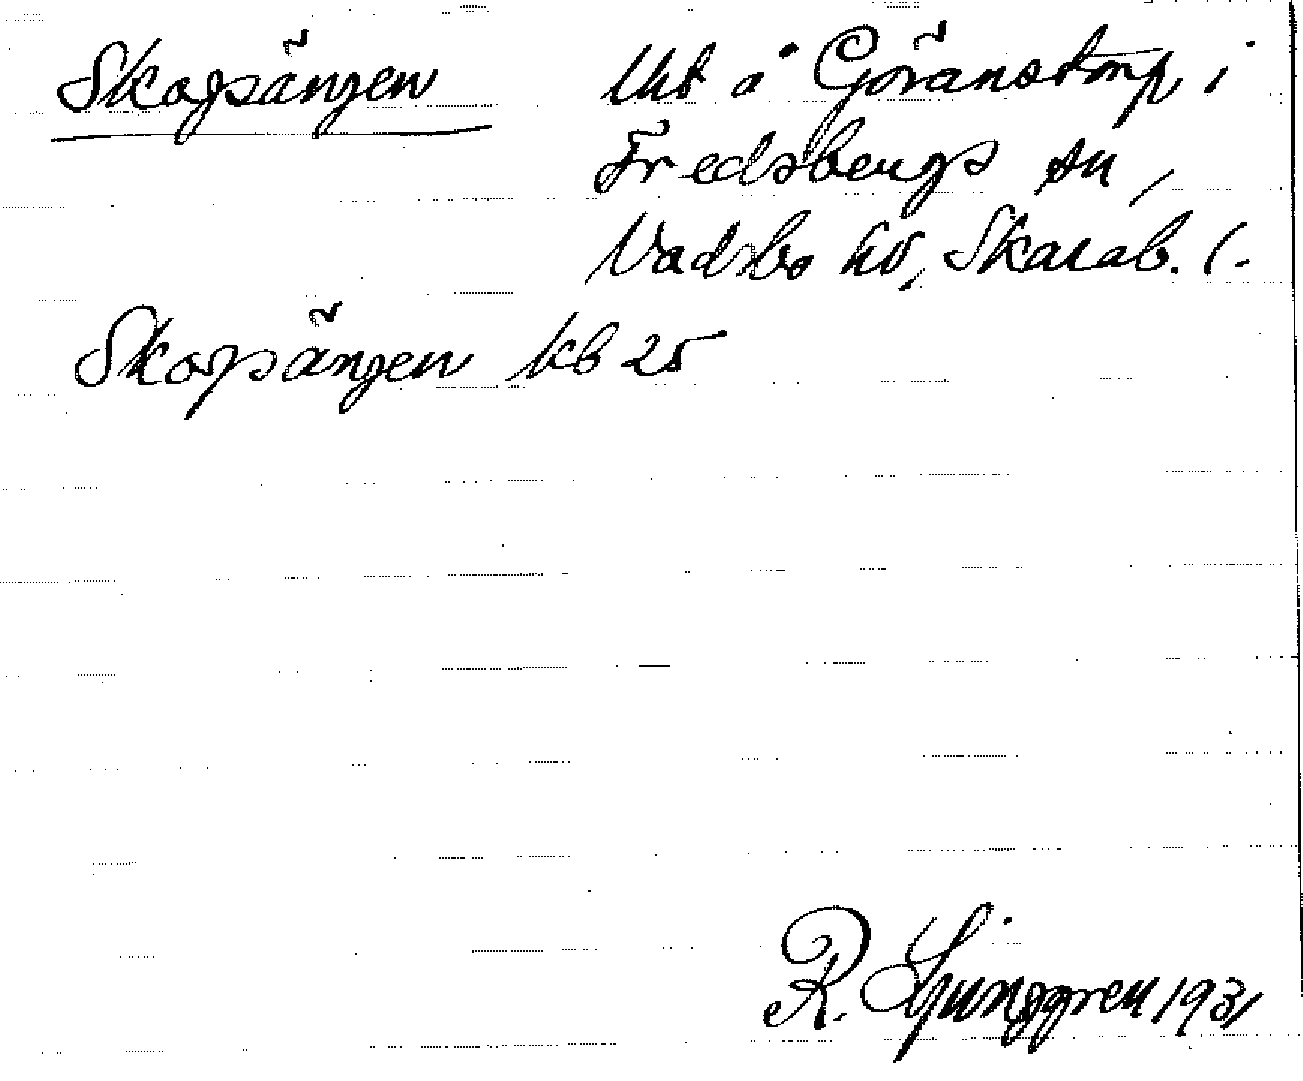 Skogsängen
Utb å Göranstorp i
Fredsbergs sn,
Vadsbo hd, Skarab. l.
Skogsängen kb 25
R. Ljunggren 1931